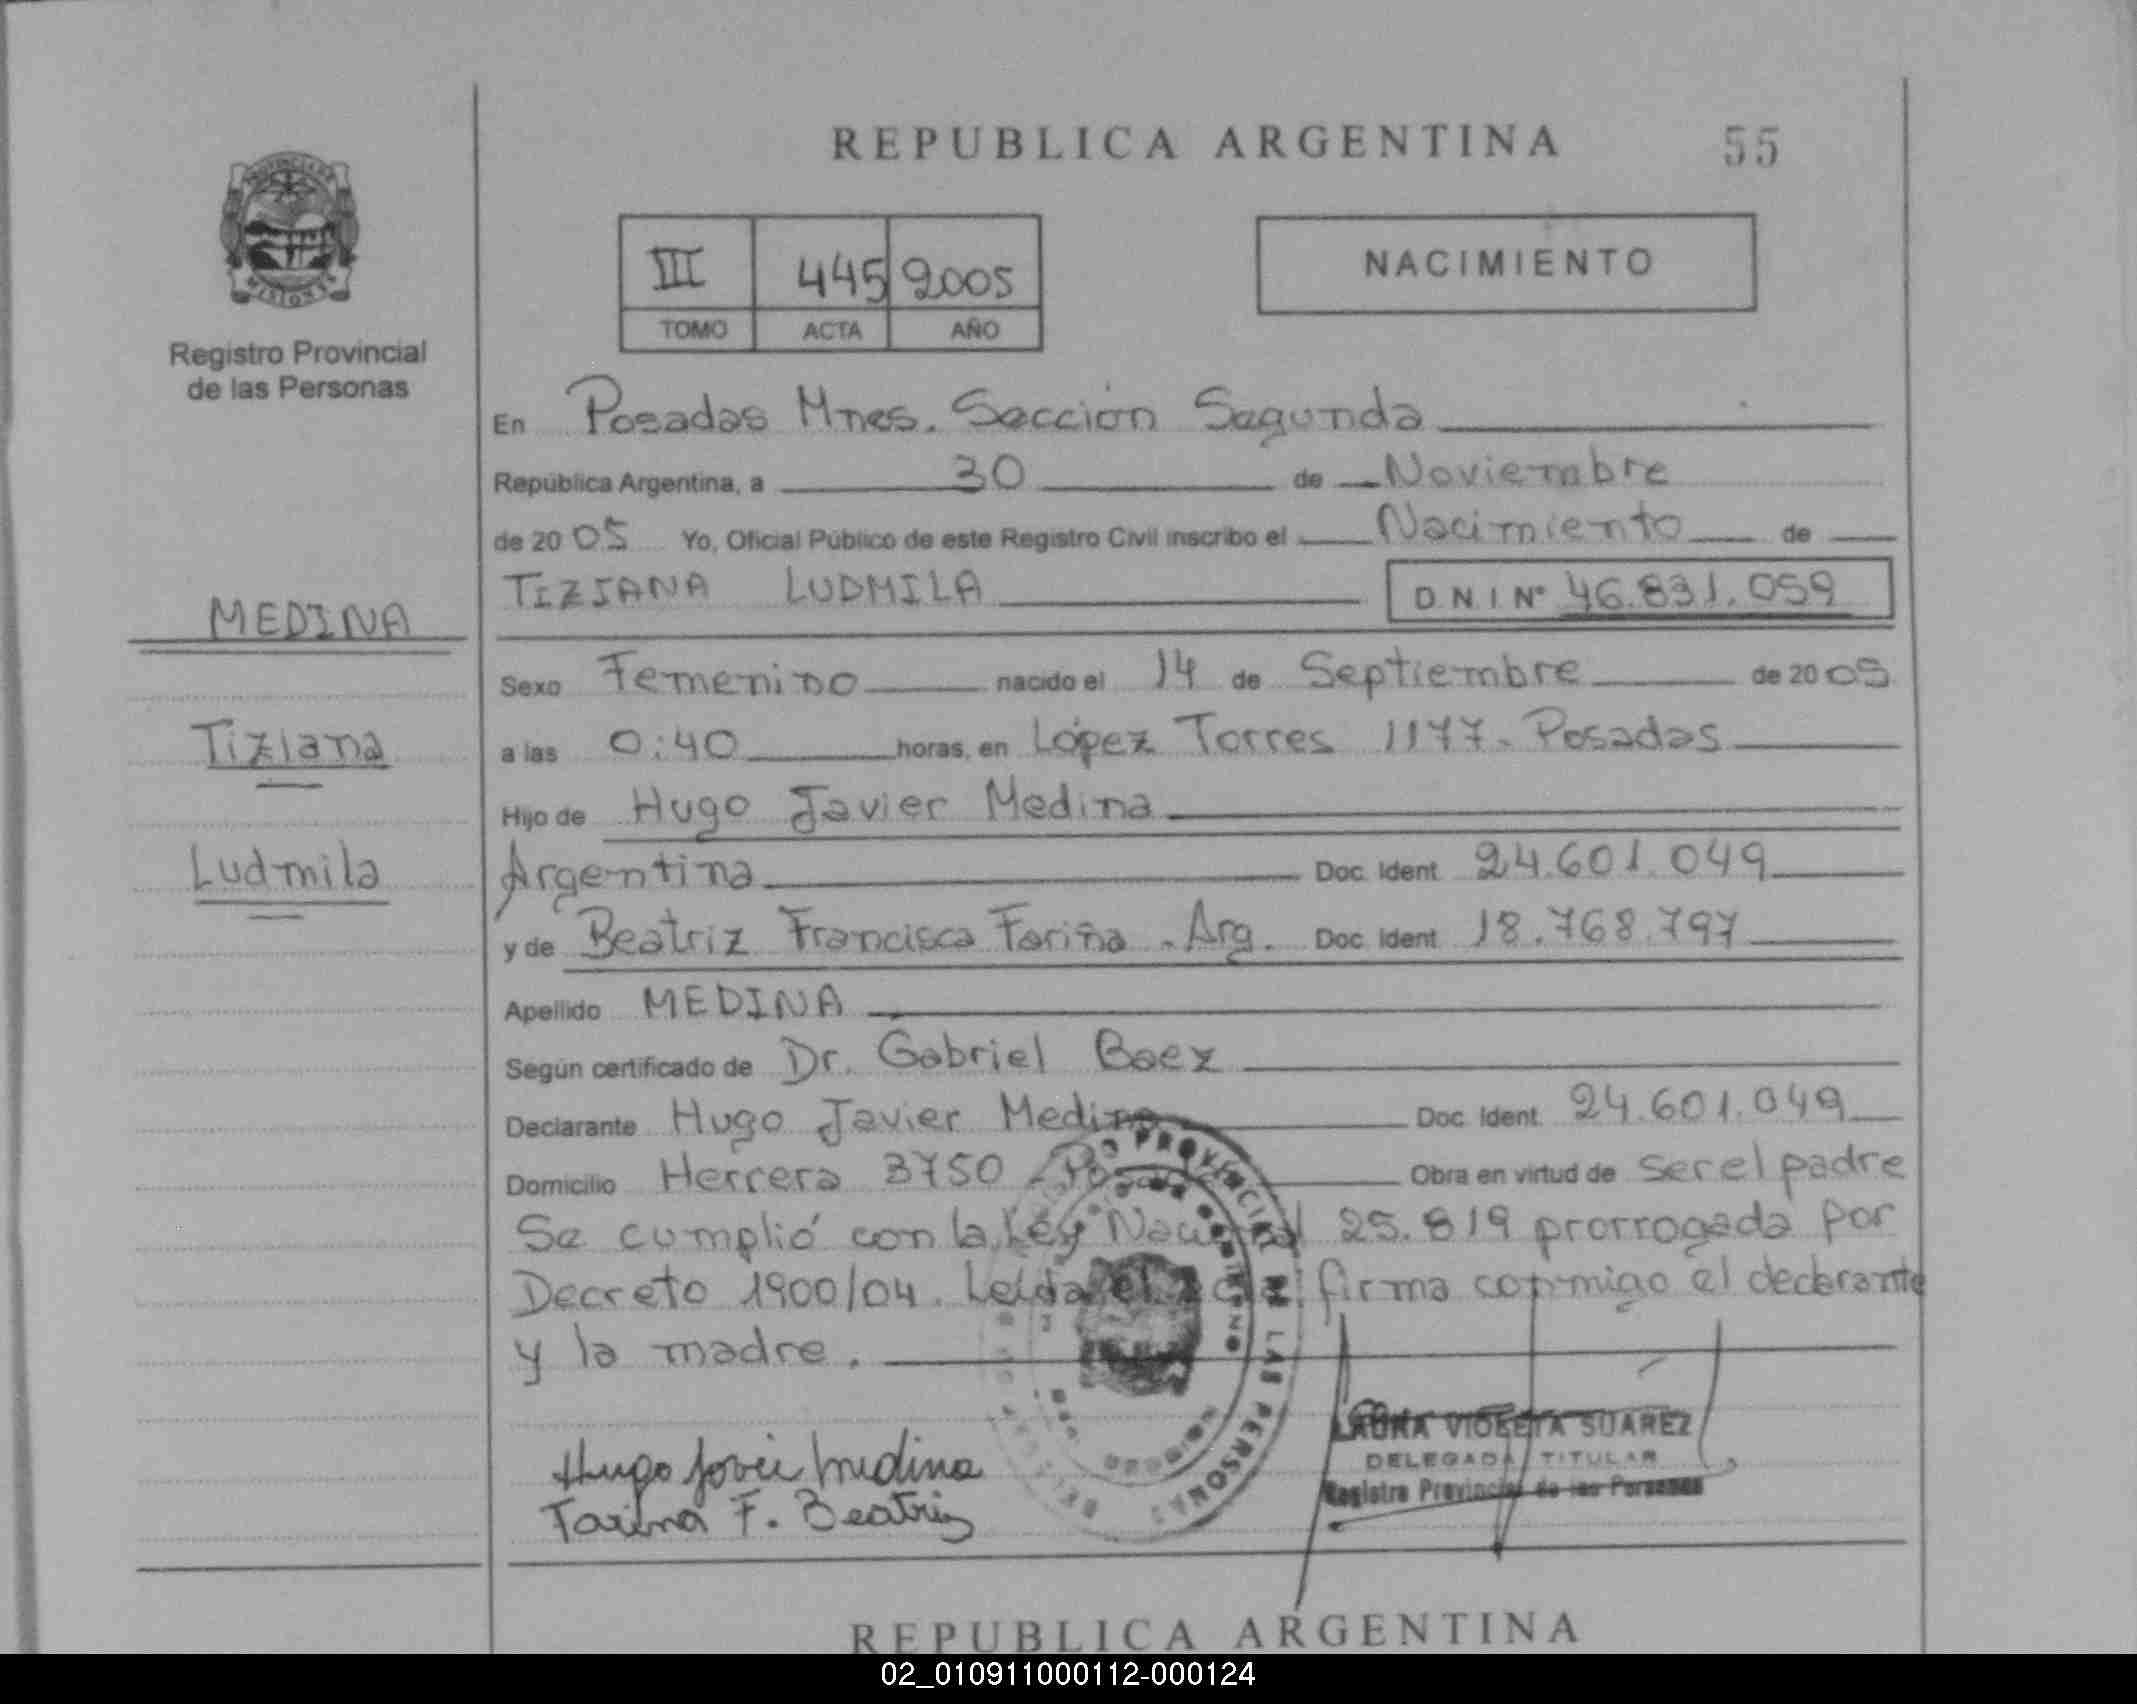 REPUBLICA ARGENTINA 55
PROVINCIA DE
MISIONES
Registro Provincial
de las Personas
III 445 2005
TOMO ACTA AÑO
NACIMIENTO
En Posadas Mnes. Sección Segunda
República Argentina, a 30 de Noviembre
de 2005 Yo, Oficial Público de este Registro Civil inscribo el Nacimiento de
TIZIANA LUDMILA D.N.I Nº 46.831.059
MEDINA
Tiziana
Ludmila
Sexo Femenino nacido el 14 de Septiembre de 2005
a las 0:40 horas, en López Torres 1177. Posadas
Hijo de Hugo Javier Medina
Argentina Doc. Ident 24.601.049
y de Beatriz Francisca Fariña . Arg. Doc. Ident 18.768.797
Apellido MEDINA
Según certificado de Dr. Gabriel Baez
Declarante Hugo Javier Medina Doc. Ident. 24.601.049
Domicilio Herrera 3750 Obra en virtud de ser el padre
Se cumplió con la Ley Nacional 25.819 prorrogada por
Decreto 1900/04. Leída el acta firma conmigo el declarante
y la madre.
PROVINCIAL DE LAS PERSONAS
Hugo Javier Medina
Farina F. Beatriz
LAURA VIOLETA SUAREZ
DELEGADA TITULAR
Registro Provincial de las Personas
REPUBLICA ARGENTINA
02_010911000112-000124